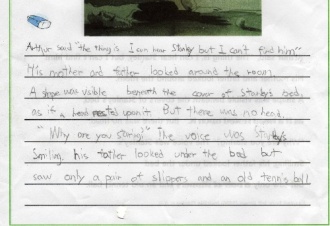 Arthur said "the thing is I can hear Stanley but I can't find him"
His mother and father looked around the room.
A shape was visible beneath the cover of Stanley's bed,
as if a head rested upon it. But there was no head.
"Why are you staring?" The voice was Stanley's
Smiling, his father looked under the bed but
saw only a pair of slippers and an old tennis ball